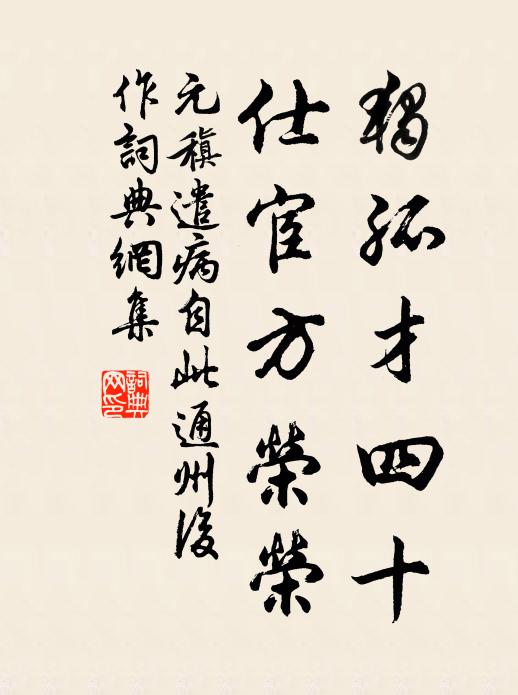 獨孤才四十
仕宦方榮榮
元稹遣病自此通州後
作詞典網集
詞典网印